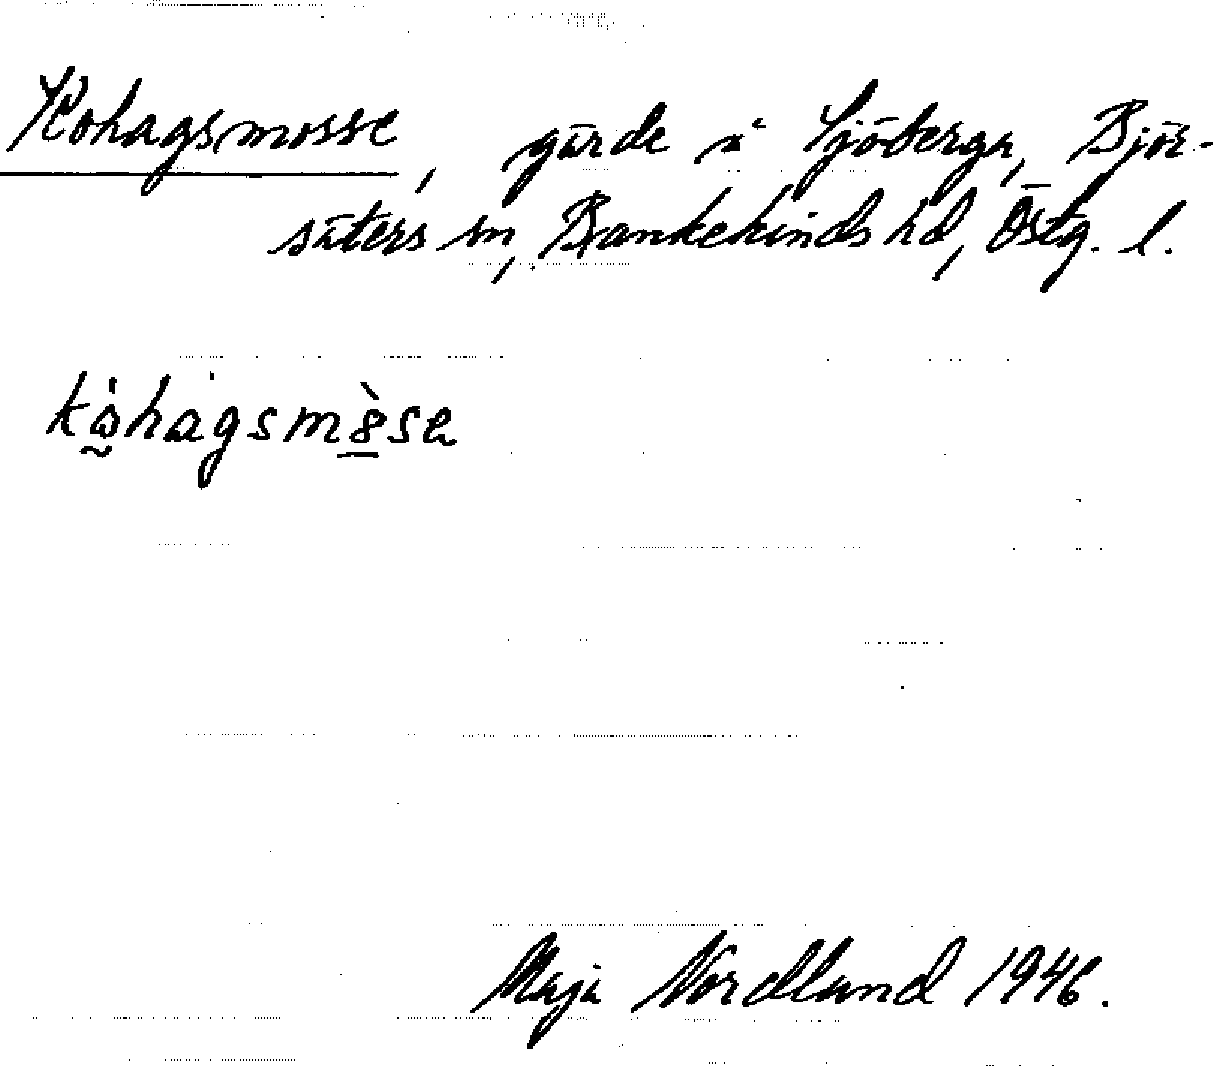 Kohagsmosse, gärde å Sjöberga, Björ-
säters sn, Bankekinds hd, Östg. l.
Maja Nordlund 1946.